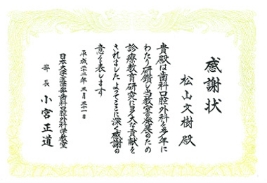 感謝状
松山文樹 殿
貴殿は歯科口腔外科を多年に
わたり研鑽し当教室発展のため
診療教育研究に多大な貢献を
されました よってここに深く感謝の
意を表します
平成二十五年 三月三十一日
日本大学松戸歯学部歯科口腔外科学教室
部長 小宮正道